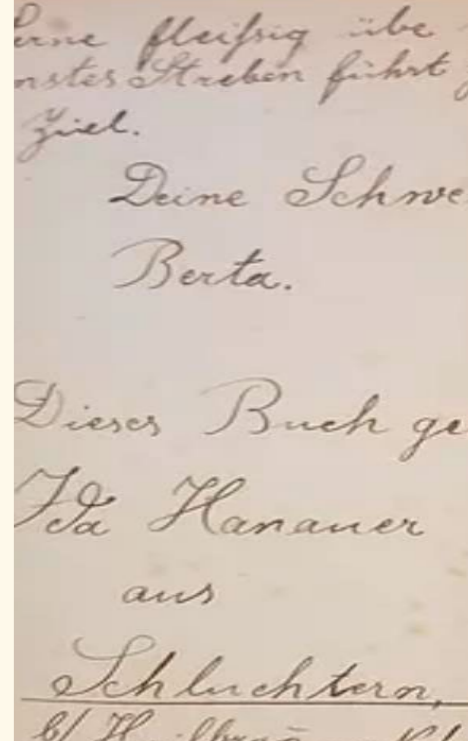 erne fleißig übe
nstes Streben führt
Ziel.
Deine Schwe
Berta.
Dieses Buch ge
Ida Hanauer
aus
Schluchtern,